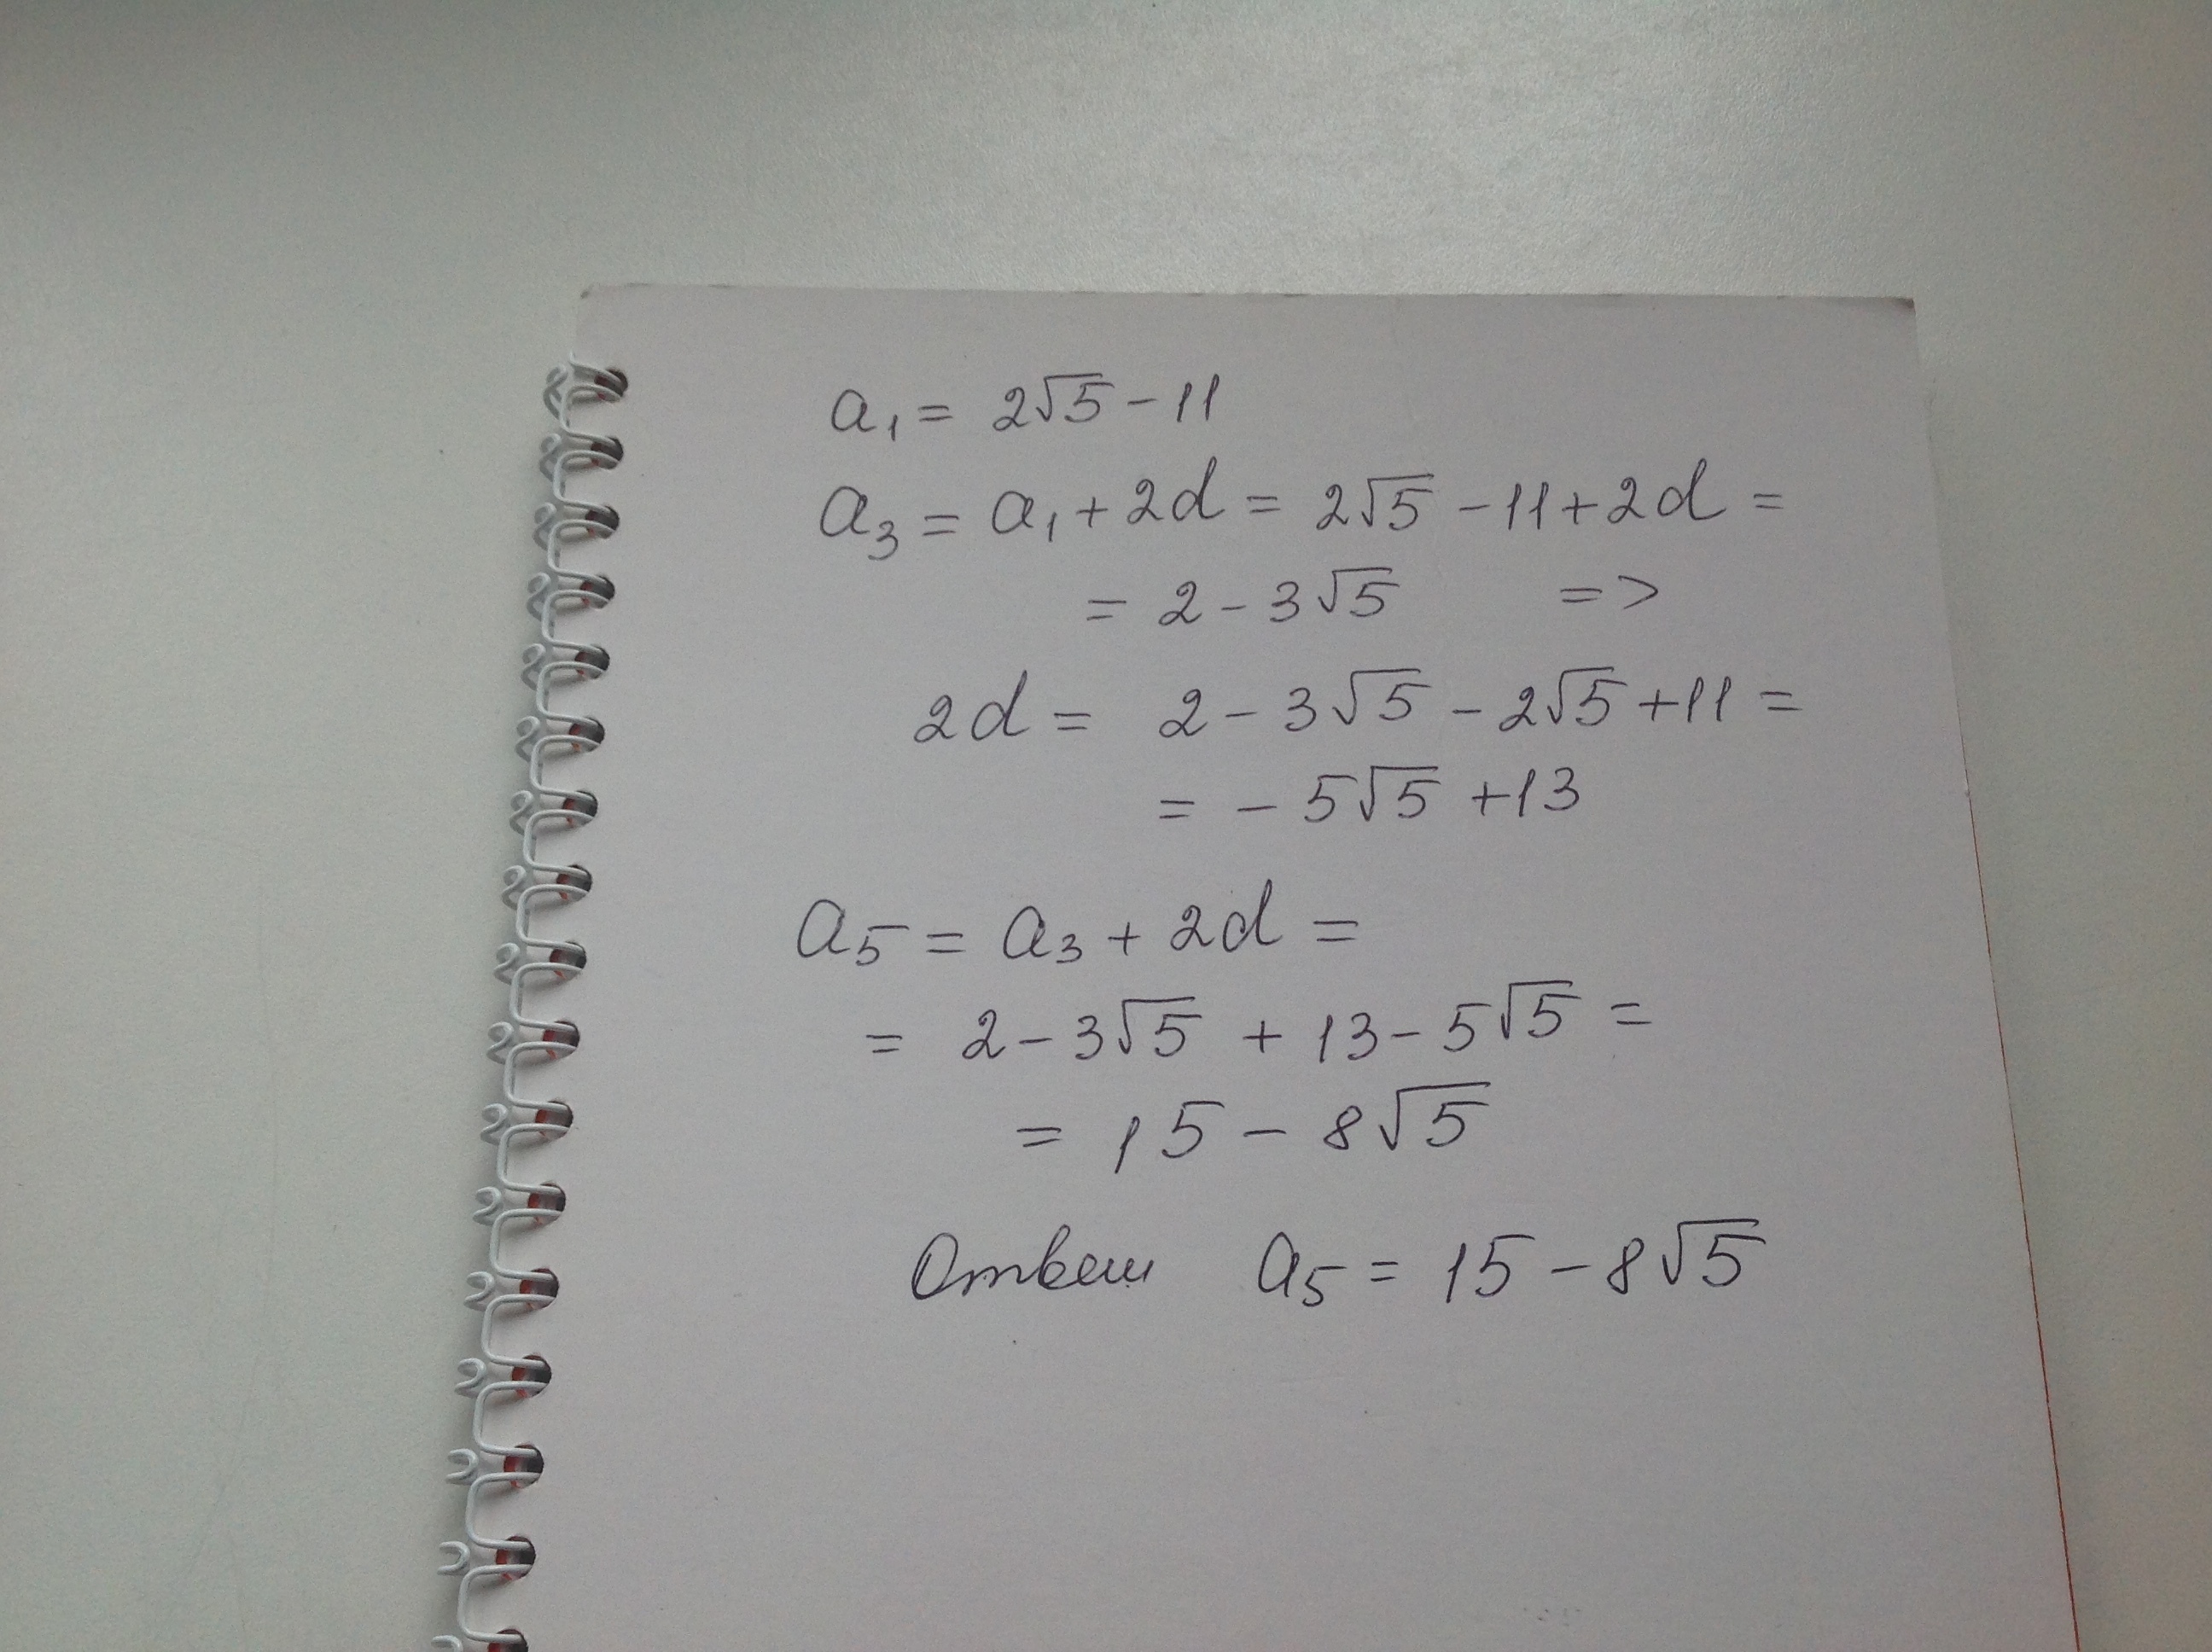 a₁ = 2√5 - 11
a₃ = a₁ + 2d = 2√5 - 11 + 2d =
= 2 - 3√5 =>
2d = 2 - 3√5 - 2√5 + 11 =
= - 5√5 + 13
a₅ = a₃ + 2d =
= 2 - 3√5 + 13 - 5√5 =
= 15 - 8√5
Ответ a₅ = 15 - 8√5